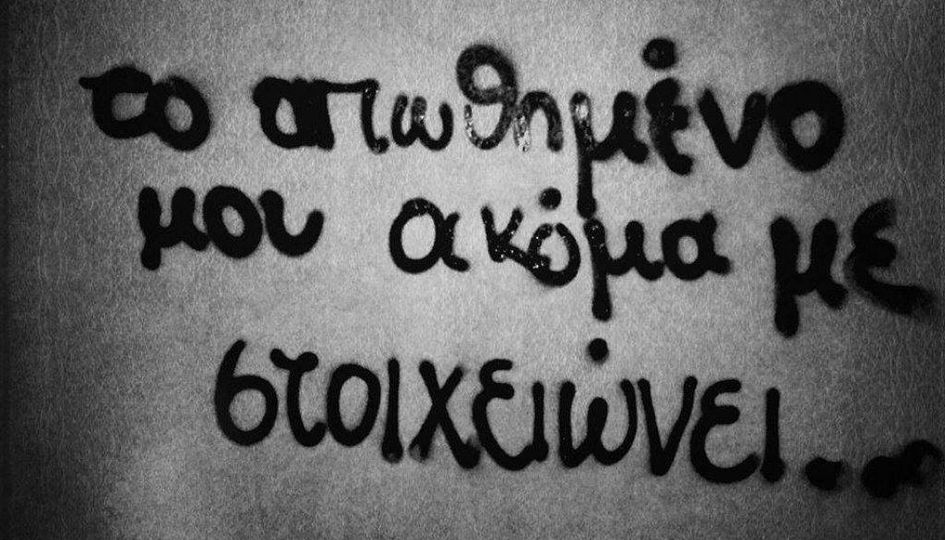 το απωθημένο
μου ακόμα με
στοιχειώνει...